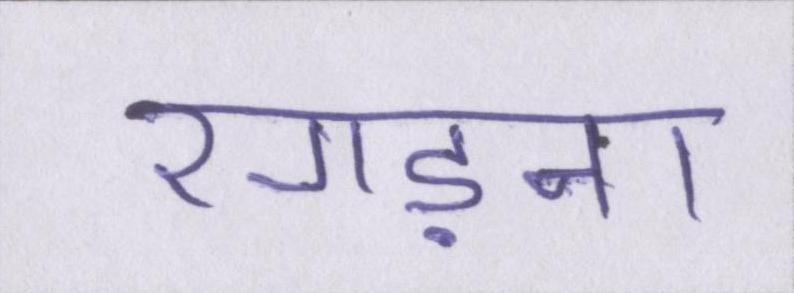 रगड़ना